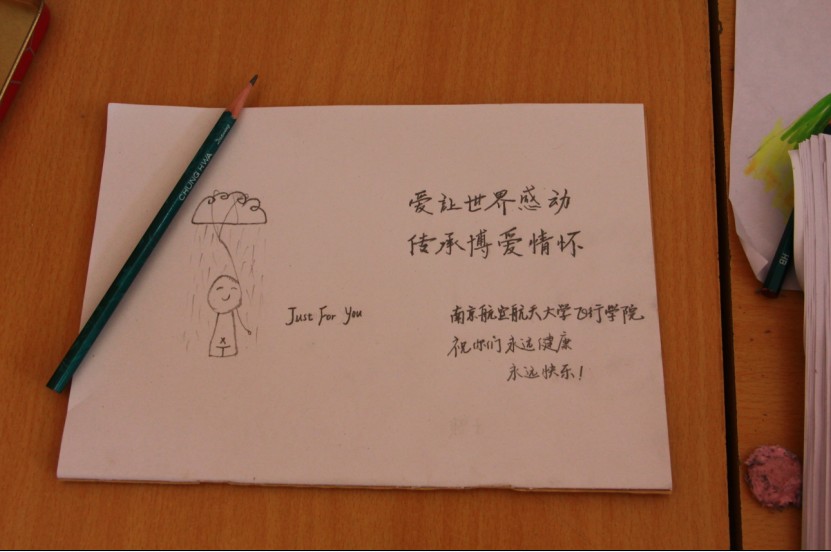 CHUNG HWA
爱让世界感动
传承博爱情怀
Just For You
南京航空航天大学飞行学院
祝你们永远健康
永远快乐!
HB